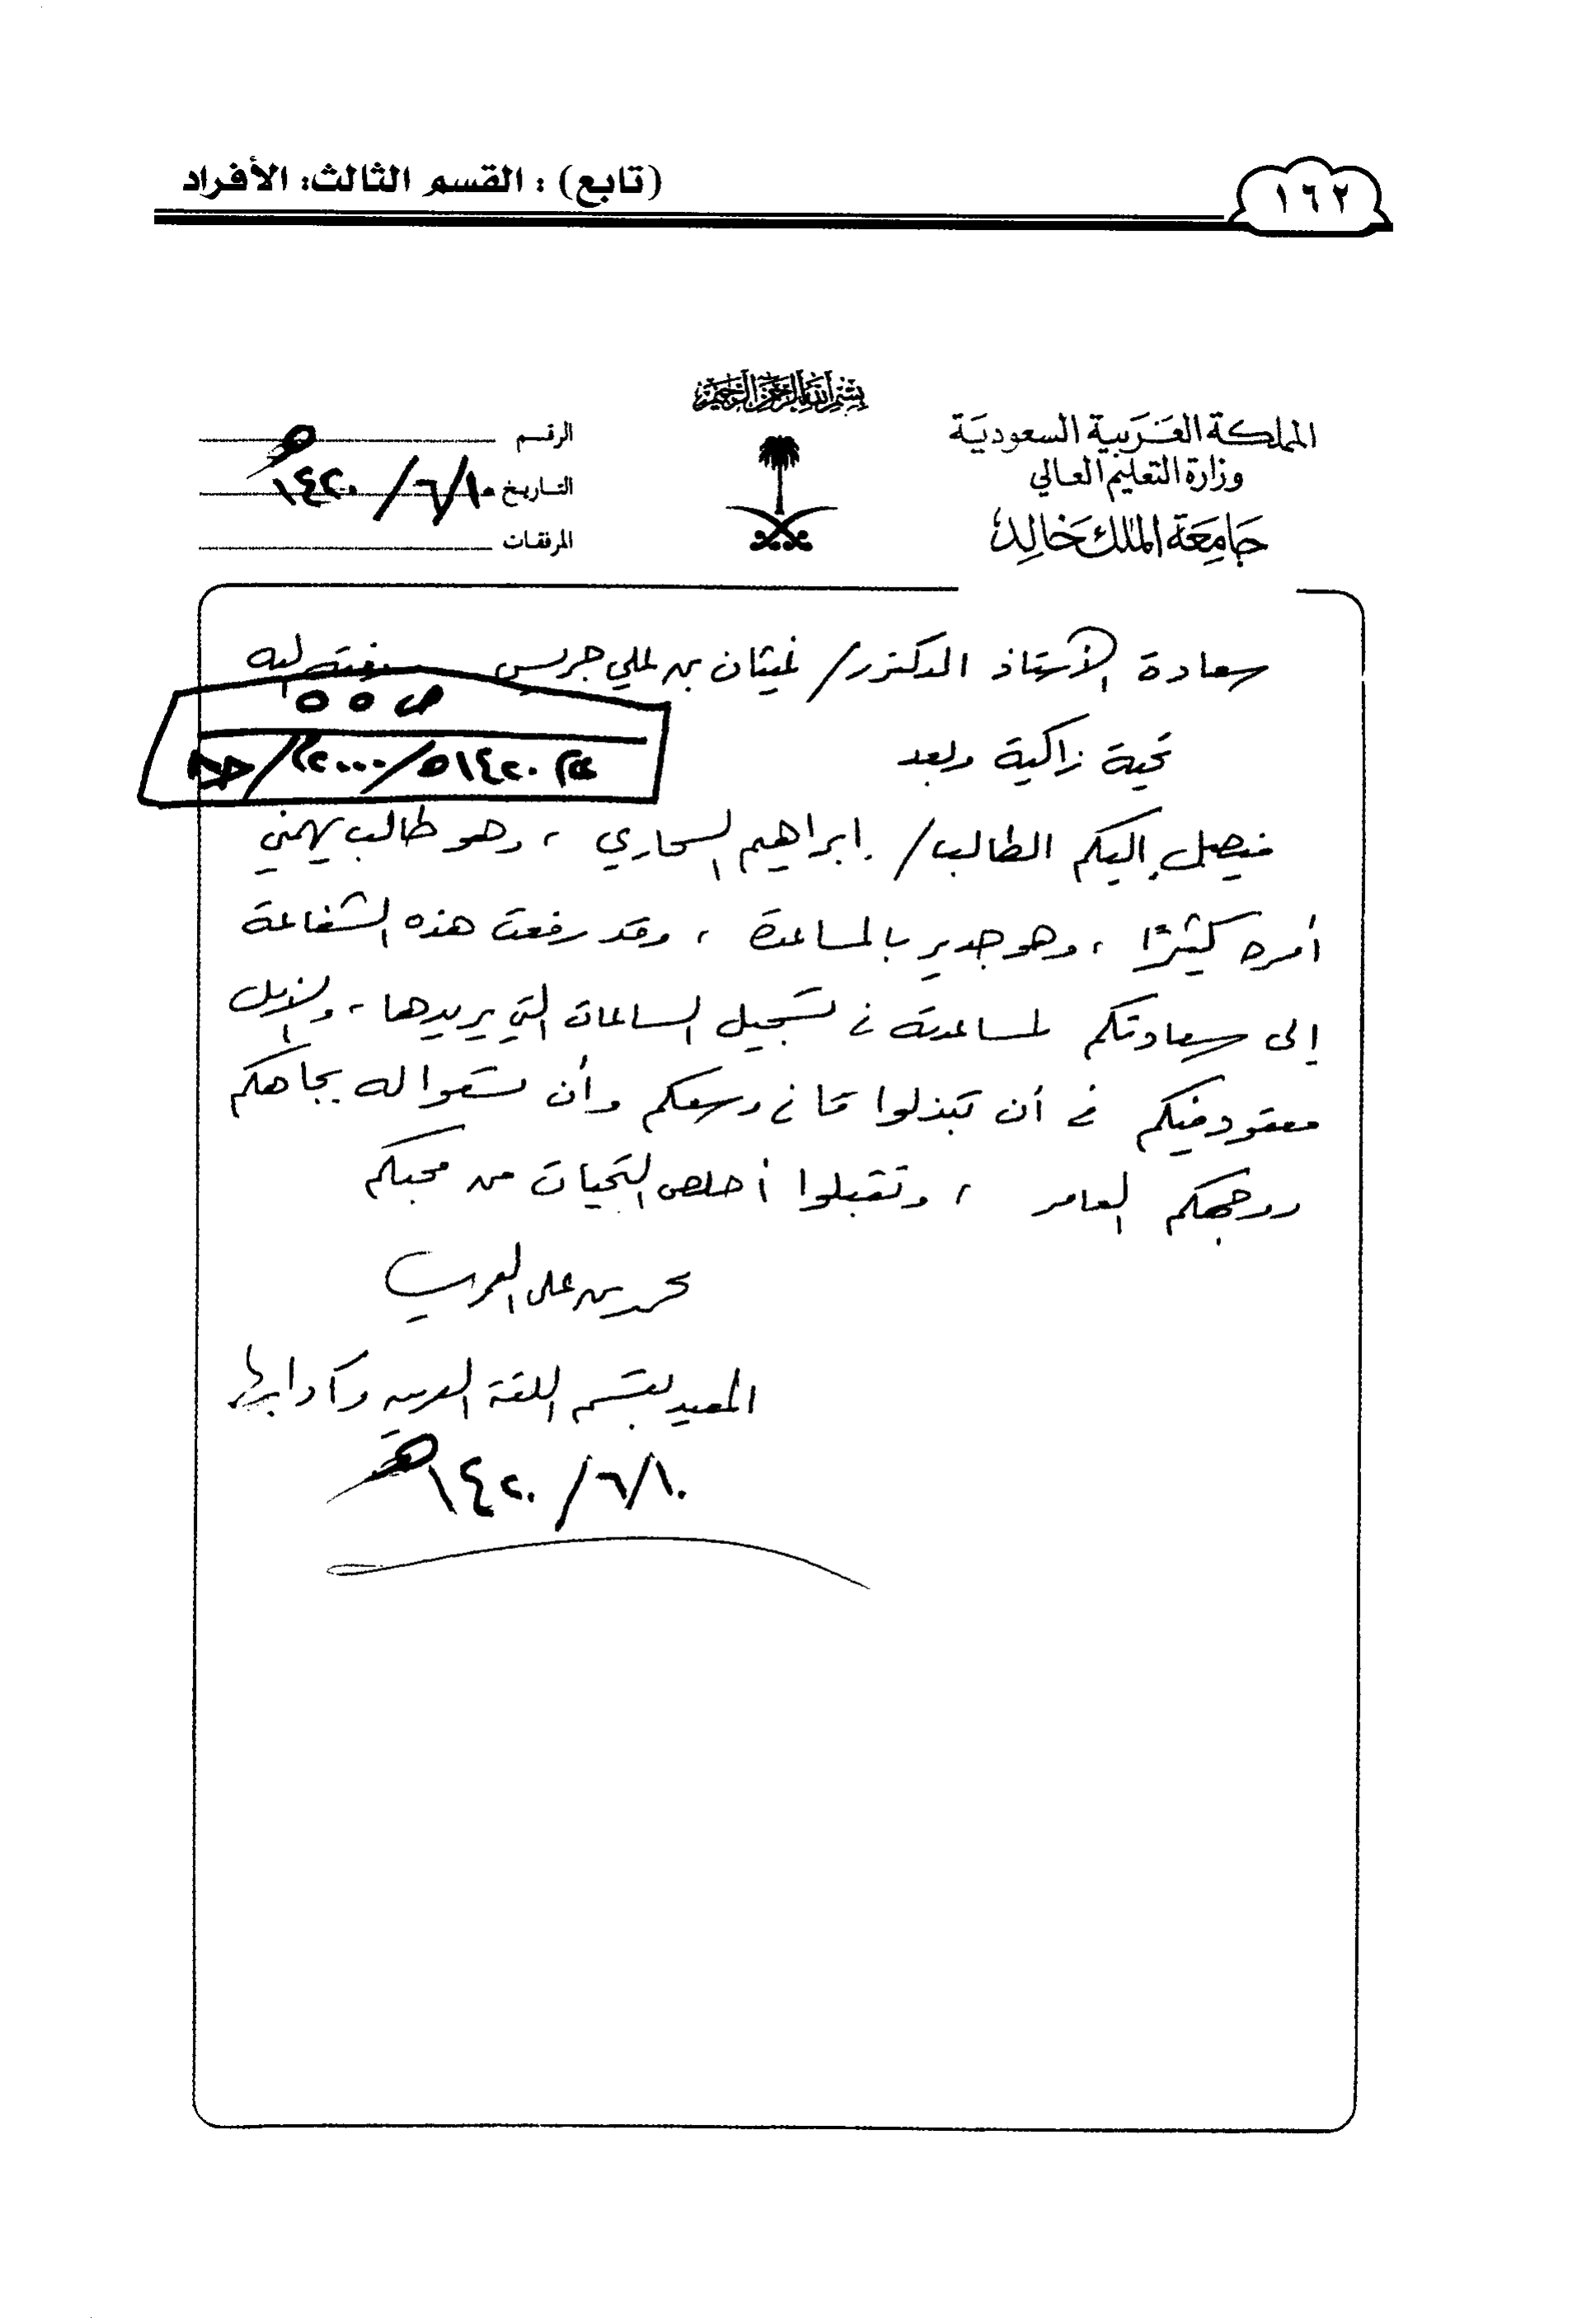 ١٦٢
(تابع) : القسم الثالث: الأفراد
بسم الله الرحمن الرحيم
المملكة العربية السعودية
وزارة التعليم العالي
جامعة الملك خالد
الرقم
التاريخ ١٠/٦/١٤٢٠هـ
المرفقات
سعادة الأستاذ الدكتور/ غيثان بن علي جريس
ص ٥٥
١٤٢٠هـ/٢٠٠٠م
تحية زاكية وبعد
فيصل إليكم الطالب/ إبراهيم السحاري ، وهو طالب يهمني
أمره كثيرًا ، وهو جدير بالمساعدة ، وقد رفعت هذه الشفاعة
إلى سعادتكم لمساعدته في تسجيل الساعات التي يريدها ، والأمل
معقود فيكم في أن تبذلوا ما في وسعكم وأن تسعوا له بجاهكم
ووجهكم العامر ، وتقبلوا أخلص التحيات من محبكم
محمد بن علي العمري
المعيد بقسم اللغة العربية وآدابها
١٠/٦/١٤٢٠هـ